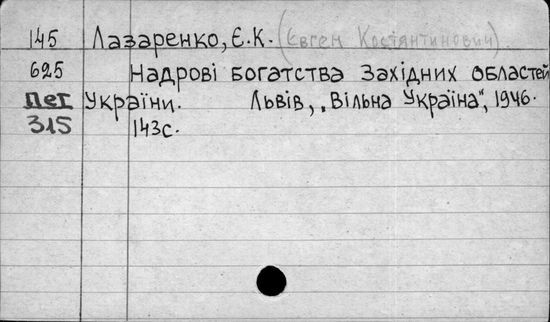 145 Лазаренко, Є.К. (Євген Костянтинович)
625 Надрові богатства Західних областей
Пег України. Львів, „Вільна Україна", 1946.
315 143с.